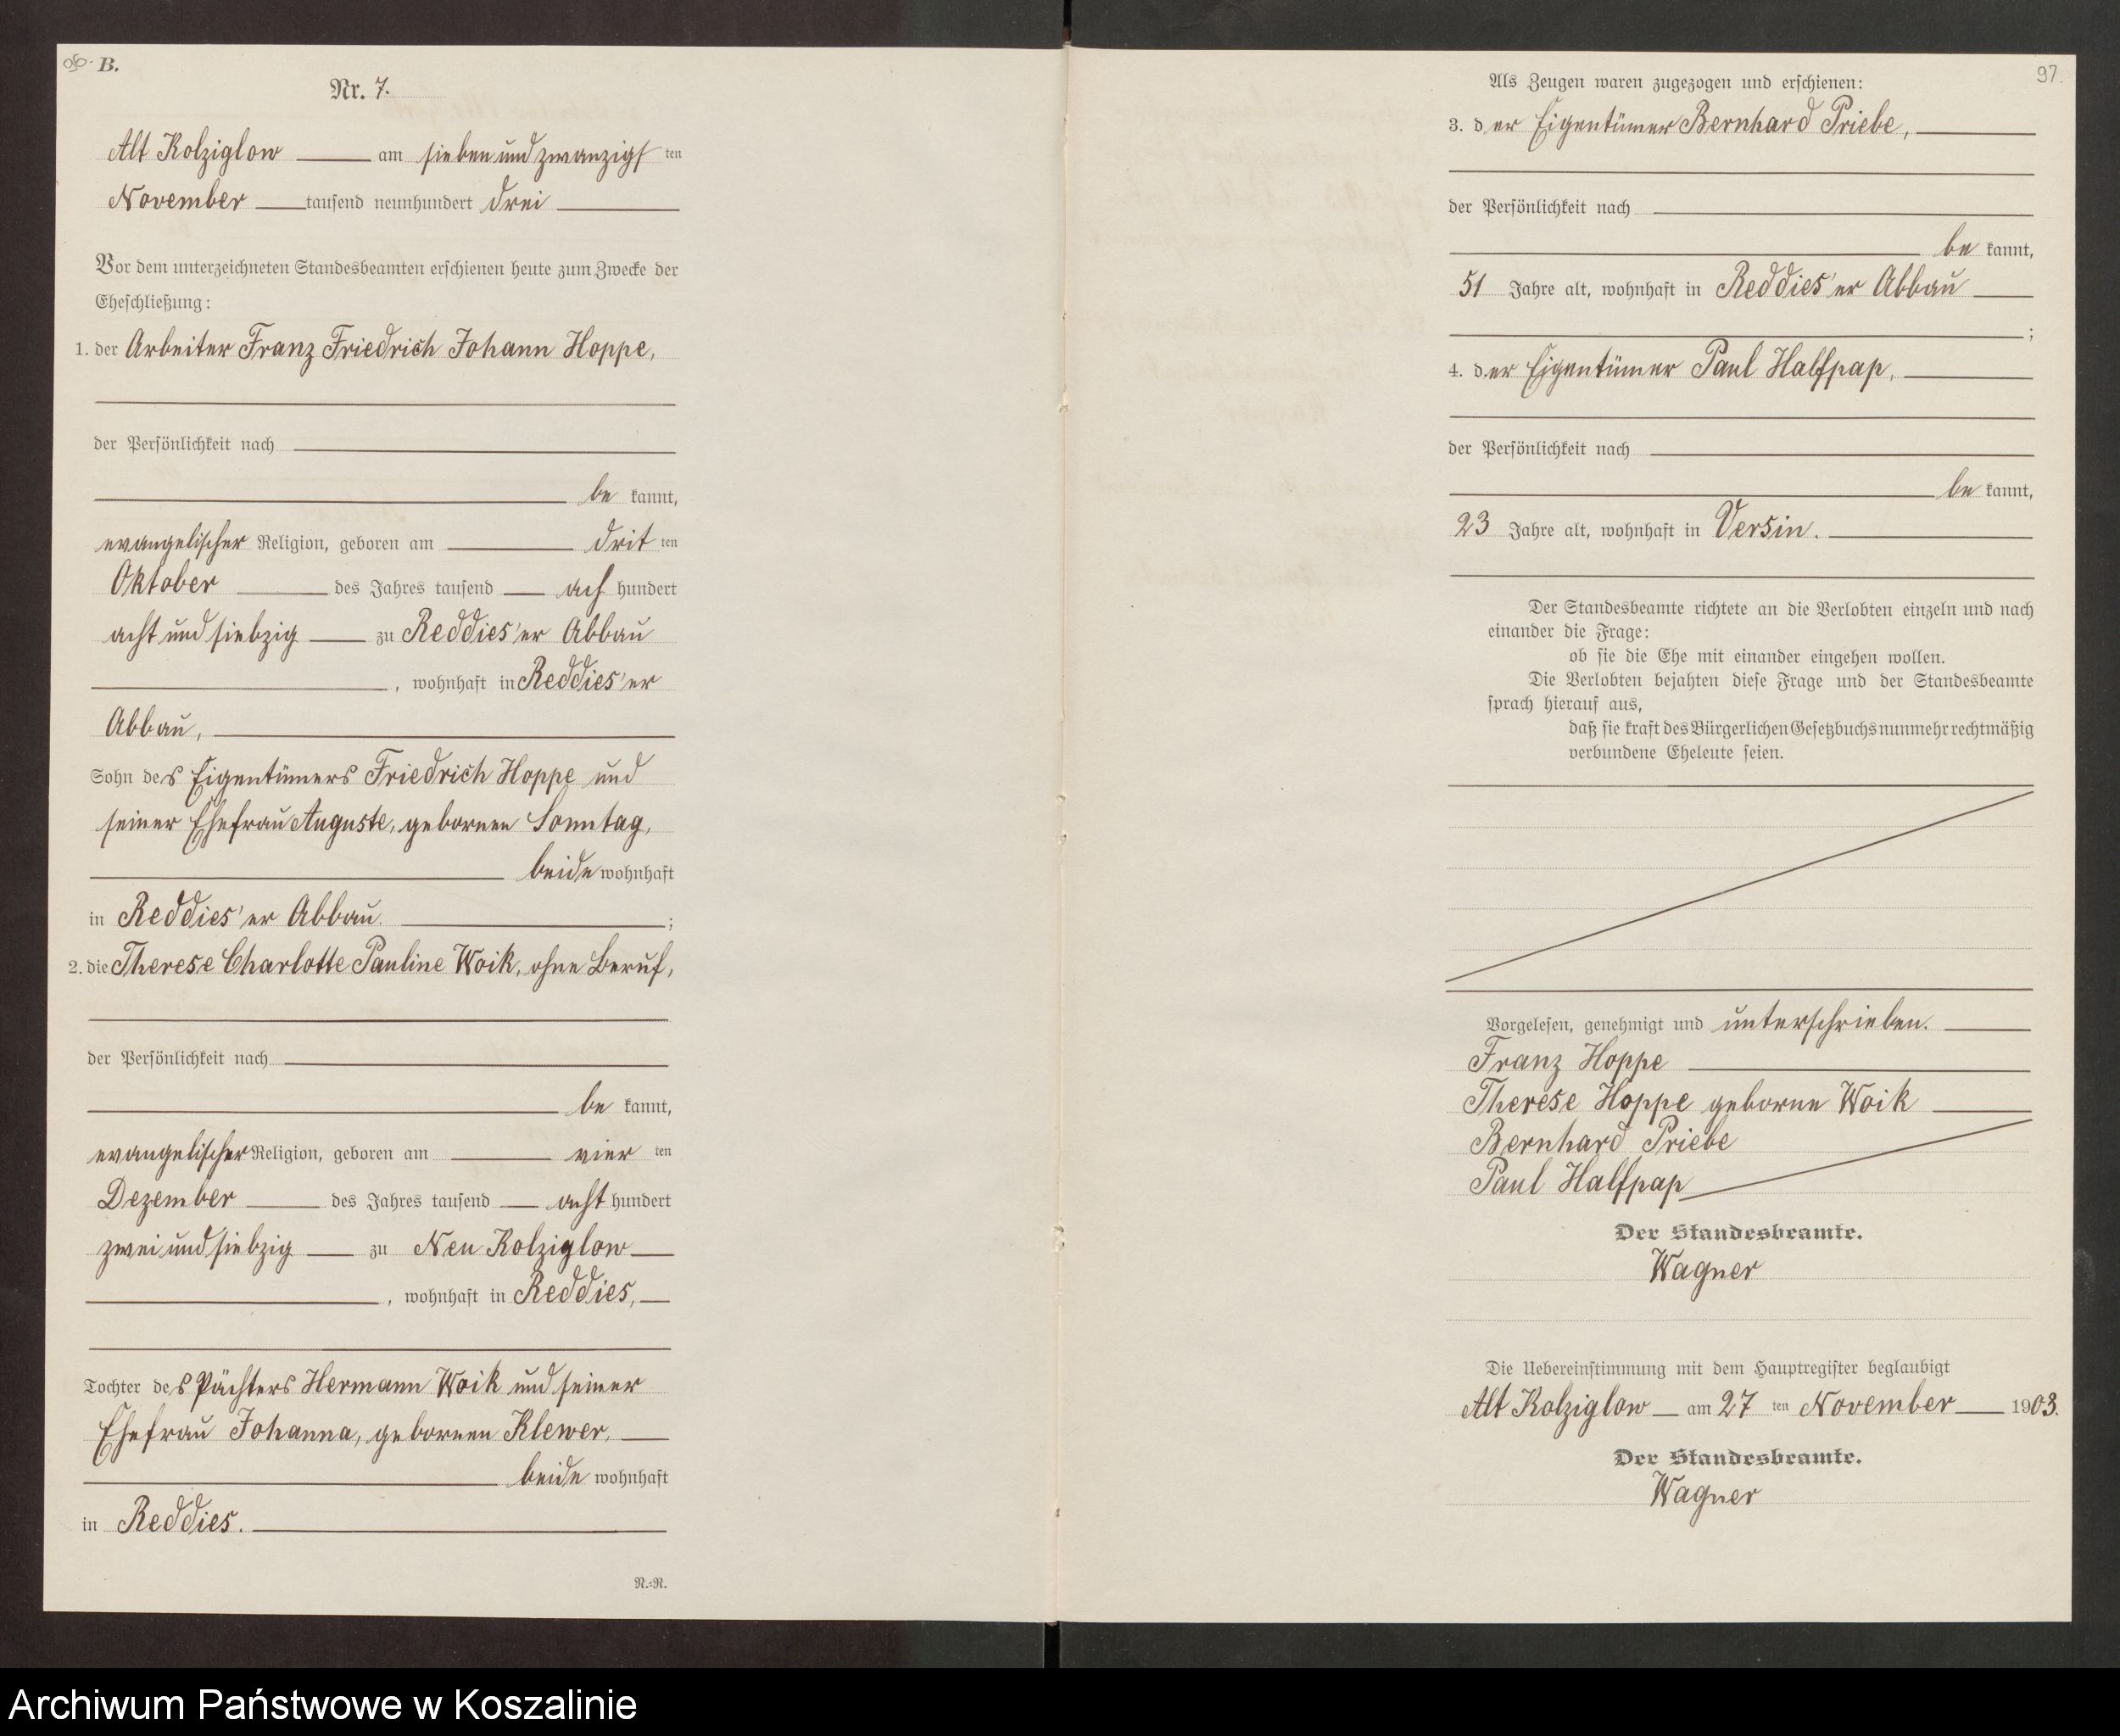 96. B.
Nr. 7.
Alt Kolziglow am sieben und zwanzigsten
November tausend neunhundert drei
Vor dem unterzeichneten Standesbeamten erschienen heute zum Zwecke der
Eheschließung:
1. der Arbeiter Franz Friedrich Johann Hoppe,
der Persönlichkeit nach
be kannt,
evangelischer Religion, geboren am dritten
Oktober des Jahres tausend acht hundert
acht und siebzig zu Reddies'er Abbau
, wohnhaft in Reddies'er
Abbau,
Sohn des Eigentümers Friedrich Hoppe und
seiner Ehefrau Auguste, geborenen Sonntag,
beide wohnhaft
in Reddies'er Abbau. ;
2. die Therese Charlotte Pauline Woik, ohne Beruf,
der Persönlichkeit nach
be kannt,
evangelischer Religion, geboren am vierten
Dezember des Jahres tausend acht hundert
zwei und siebzig zu Neu Kolziglow
, wohnhaft in Reddies,
Tochter des Pächters Hermann Woik und seiner
Ehefrau Johanna, geborenen Klewer,
beide wohnhaft
in Reddies.
N.=N.
97.
Als Zeugen waren zugezogen und erschienen:
3. der Eigentümer Bernhard Priebe,
der Persönlichkeit nach
be kannt,
51 Jahre alt, wohnhaft in Reddies'er Abbau
;
4. der Eigentümer Paul Halfpap,
der Persönlichkeit nach
be kannt,
23 Jahre alt, wohnhaft in Versin.
Der Standesbeamte richtete an die Verlobten einzeln und nach
einander die Frage:
ob sie die Ehe mit einander eingehen wollen.
Die Verlobten bejahten diese Frage und der Standesbeamte
sprach hierauf aus,
daß sie kraft des Bürgerlichen Gesetzbuchs nunmehr rechtmäßig
verbundene Eheleute seien.
Vorgelesen, genehmigt und unterschrieben.
Franz Hoppe
Therese Hoppe geborne Woik
Bernhard Priebe
Paul Halfpap
Der Standesbeamte.
Wagner
Die Uebereinstimmung mit dem Hauptregister beglaubigt
Alt Kolziglow am 27 ten November 1903.
Der Standesbeamte.
Wagner
Archiwum Państwowe w Koszalinie